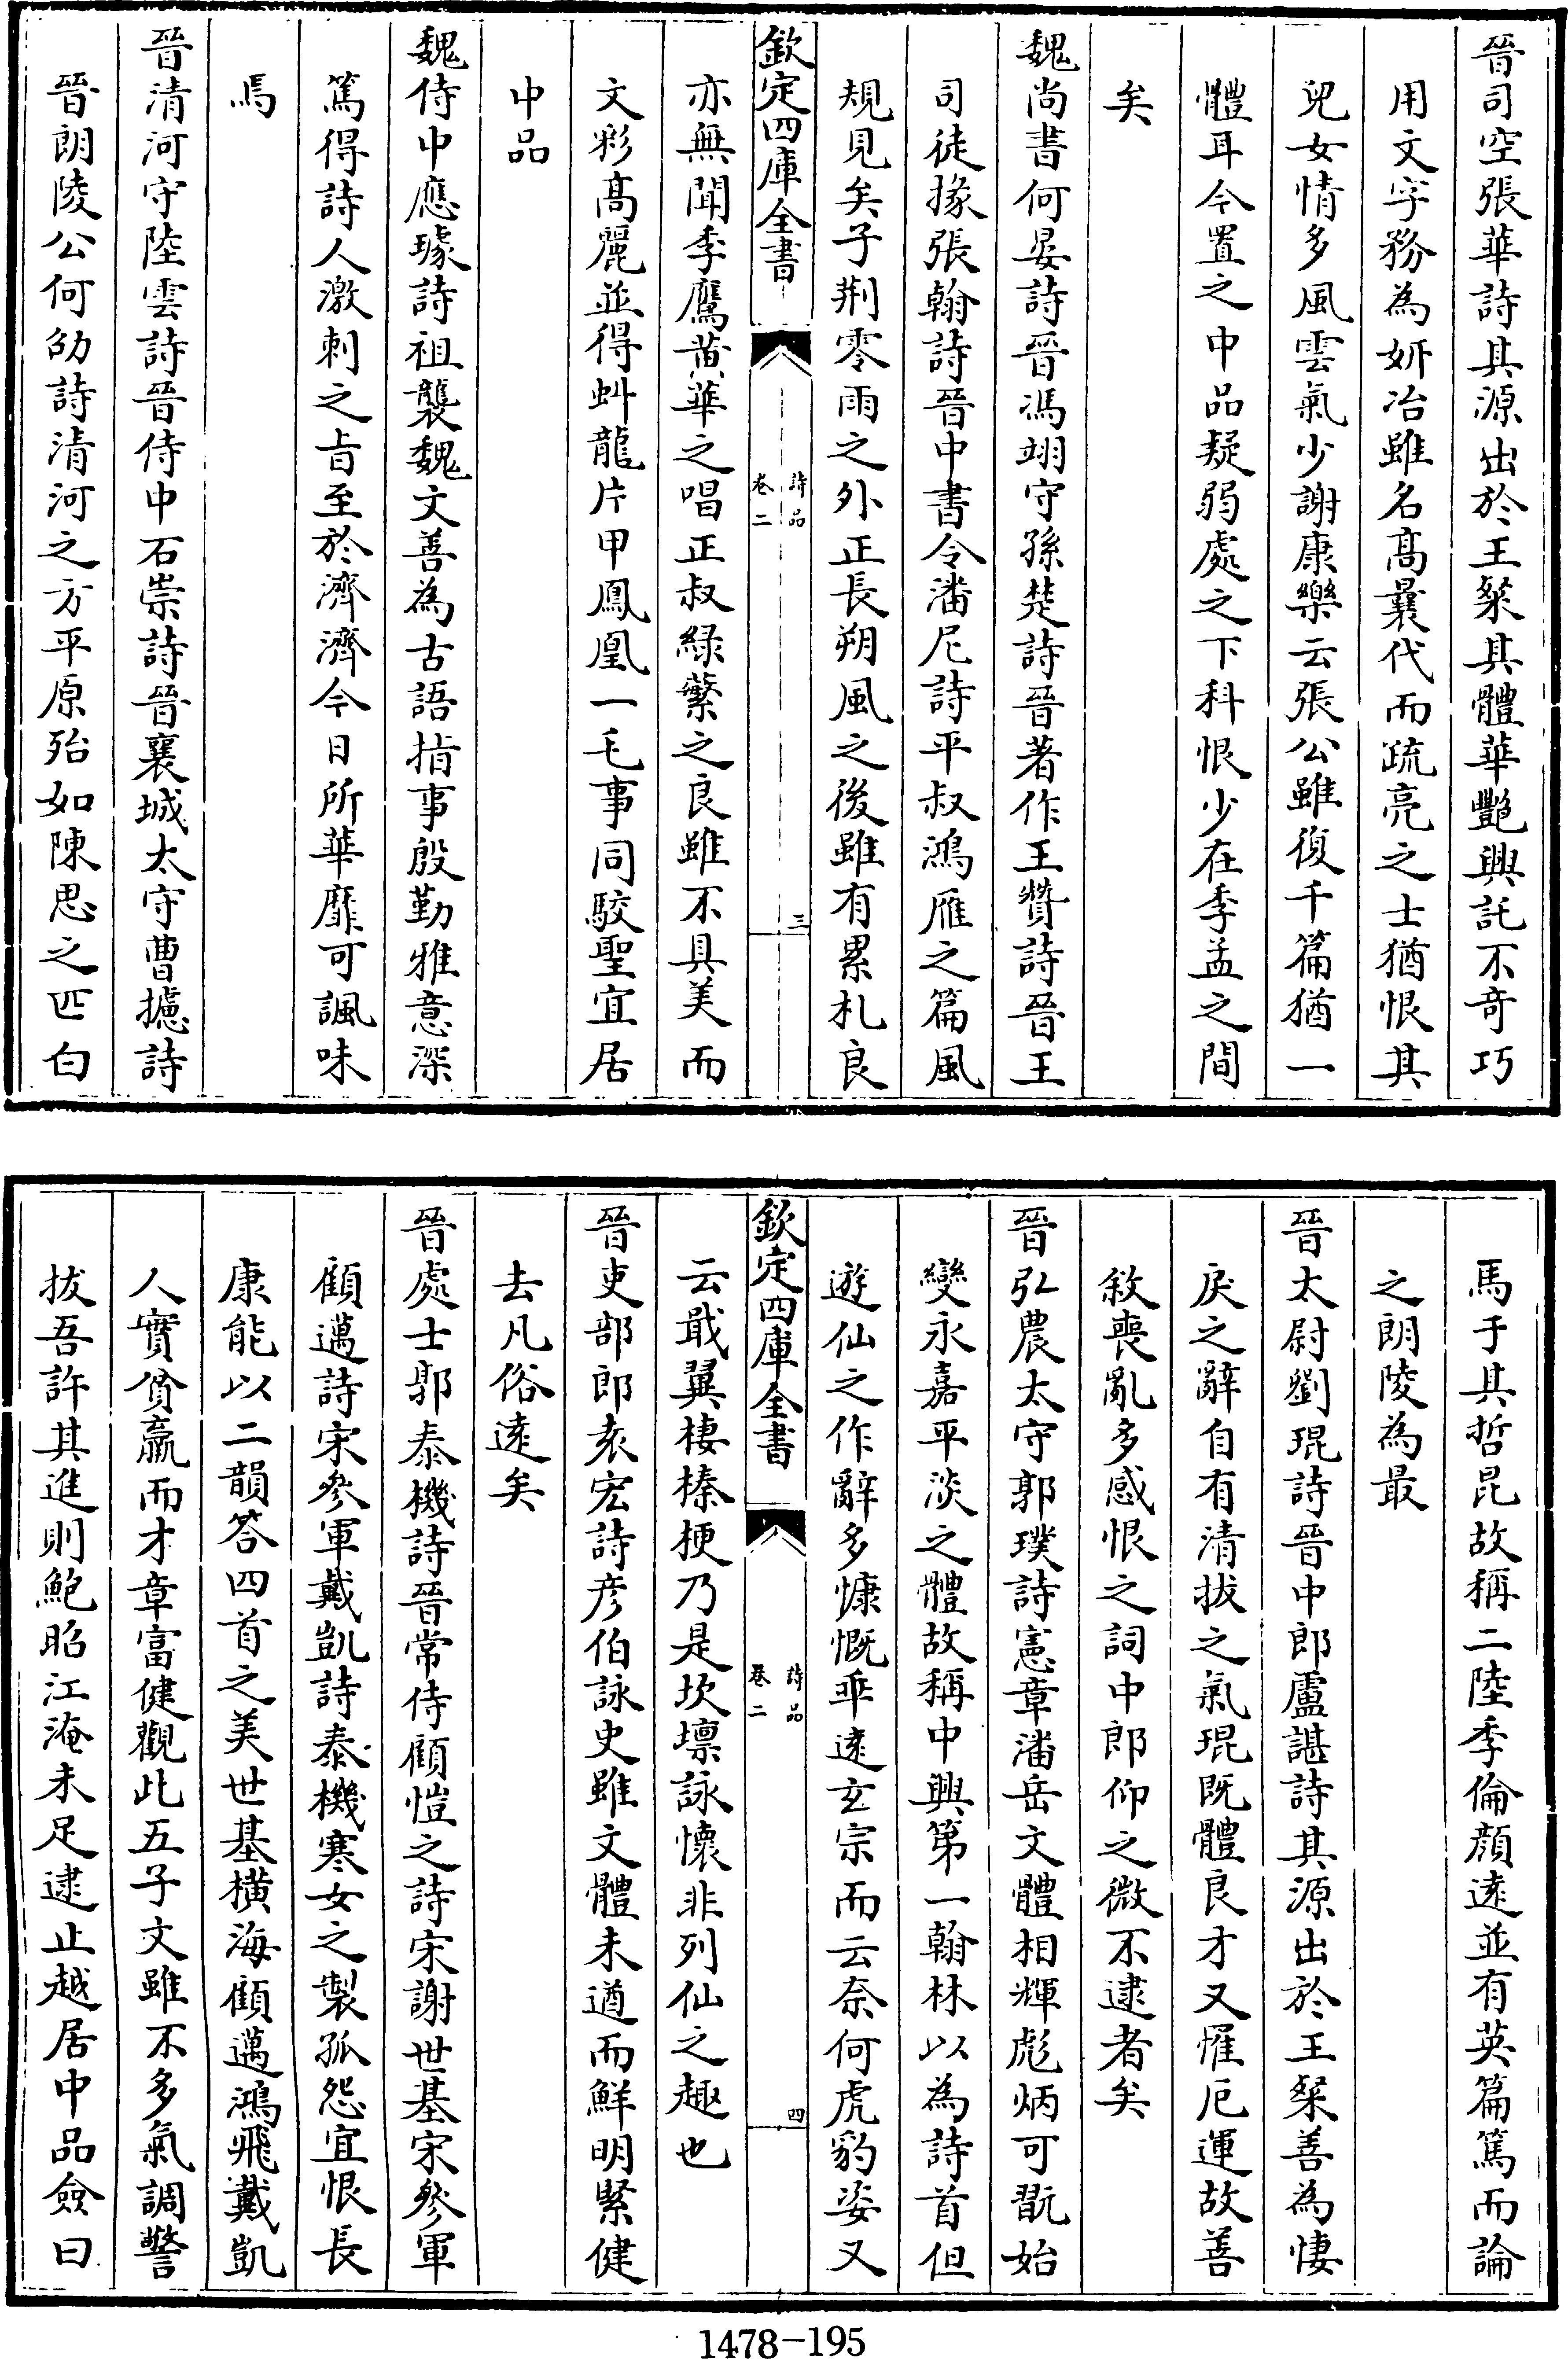 晉司空張華詩其源出於王粲其體華艷興託不竒巧
用文字務為妍冶雖名髙曩代而疏亮之士猶恨其
兒女情多風雲氣少謝康樂云張公雖復千篇猶一
體耳今置之中品疑弱處之下科恨少在季孟之間
矣
魏尚書何晏詩晉馮翊守孫楚詩晉著作王贊詩晉王
司徒掾張翰詩晉中書令潘尼詩平叔鴻雁之篇風
規見矣子荆零雨之外正長朔風之後雖有累札良
欽定四庫全書
詩品
卷二
三
亦無聞季鷹黄華之唱正叔緑蘩之良雖不具美而
文彩髙麗並得虯龍片甲鳳凰一毛事同駮聖宜居
中品
魏侍中應璩詩祖襲魏文善為古語指事殷勤雅意深
篤得詩人激刺之㫖至於濟濟今日所華靡可諷味
焉
晉清河守陸雲詩晉侍中石崇詩晉襄城太守曹攄詩
晉朗陵公何劭詩清河之方平原殆如陳思之匹白
馬于其哲昆故稱二陸季倫顔逺並有英篇篤而論
之朗陵為最
晉太尉劉琨詩晉中郎盧諶詩其源出於王粲善為悽
戾之辭自有清拔之氣琨既體良才又罹厄運故善
敘喪亂多感恨之詞中郎仰之微不逮者矣
晉弘農太守郭璞詩憲章潘岳文體相輝彪炳可翫始
變永嘉平淡之體故稱中興第一翰林以為詩首但
遊仙之作辭多慷慨乖逺玄宗而云奈何虎豹姿又
欽定四庫全書
詩品
卷二
四
云戢翼棲榛梗乃是坎壈詠懷非列仙之趣也
晉吏部郎袁宏詩彦伯詠史雖文體未遒而鮮明緊健
去凡俗逺矣
晉處士郭泰機詩晉常侍顧愷之詩宋謝世基宋參軍
顧邁詩宋參軍戴凱詩泰機寒女之製孤怨宜恨長
康能以二韻答四首之美世基横海顧邁鴻飛戴凱
人實貧羸而才章富健觀此五子文雖不多氣調警
拔吾許其進則鮑昭江淹未足逮止越居中品僉曰
1478-195